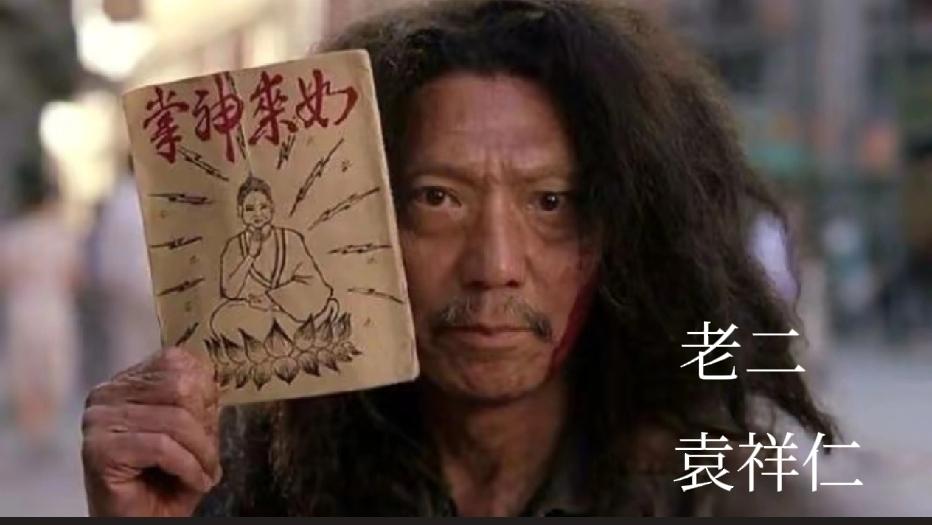 如來神掌
老二
袁祥仁